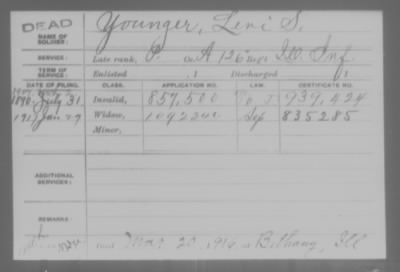 DEAD
NAME OF SOLDIER:
Younger, Levi S.
SERVICE:
Late rank, P. Co. A 126 Reg't Ill. Inf.
TERM OF SERVICE:
Enlisted , 1 Discharged , 1
DATE OF FILING. CLASS. APPLICATION NO. LAW. CERTIFICATE NO.
1890 July 31 Invalid, 857,500 939,424
Jan 29 Widow, Sep 835285
Minor,
ADDITIONAL SERVICES:
REMARKS:
died Mar 20, 1916 at Bethany, Ill